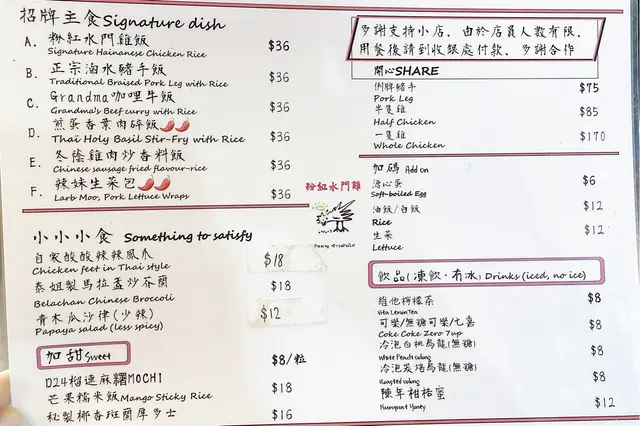 招牌主食 Signature dish
A. 粉紅水門雞飯 $36
Signature Hainanese Chicken Rice
B. 正宗滷水豬手飯 $36
Traditional Braised Pork Leg with Rice
C. Grandma咖哩牛飯 $36
Grandma's Beef curry with Rice
D. 煎蛋香葉肉碎飯 $36
Thai Holy Basil Stir-Fry with Rice
E. 冬蔭雞肉炒香料飯 $36
Chinese sausage fried flavour-rice
F. 辣妹生菜包 $36
Larb Moo, Pork Lettuce Wraps
小小小食 Something to satisfy
自家酸酸辣辣鳳爪 $18
Chicken feet in Thai style
泰姐製馬拉盞炒芥蘭 $18
Belachan Chinese Broccoli
青木瓜沙律(少辣) $12
Papaya salad (less spicy)
加甜 Sweet
D24榴槤麻糬MOCHI $8/粒
芒果糯米飯 Mango Sticky Rice $18
秘製椰香斑蘭厚多士 $16
粉紅水門雞
多謝支持小店、由於店員人數有限、
用餐後請到收銀處付款、多謝合作
開心SHARE
俐牌豬手 $75
Pork Leg
半隻雞 $85
Half Chicken
一隻雞 $170
Whole Chicken
加碼 Add on
溏心蛋 $6
Soft-boiled Egg
油飯/白飯 $12
Rice
生菜 $12
Lettuce
飲品(凍飲·有冰) Drinks (iced, no ice)
維他檸檬茶 $8
Vita Lemon Tea
可樂/無糖可樂/七喜 $8
Coke Coke Zero 7up
冷泡白桃烏龍(無糖) $8
White Peach oolong
冷泡炭焙烏龍(無糖) $8
Roasted oolong
陳年柑桔蜜 $12
Kumquat Honey